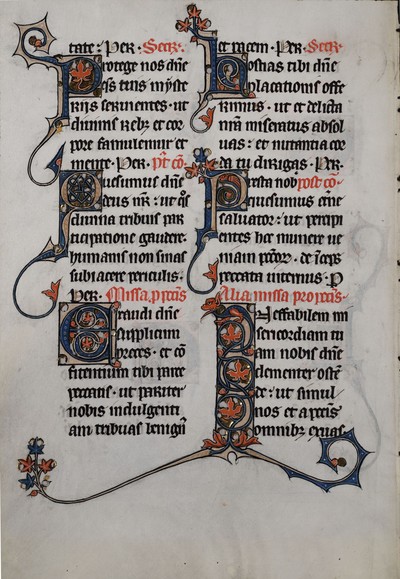 tate· Per· Secr̄·
Protege nos dn̄e
q̄s tuis myste
rijs seruientes· ut
diuinis rebꝫ et cor
pore famulemur et
mente· Per· Pt̄ cō·
Quesumus dn̄e
deus nr̄· ut q̄s
diuina tribuis par
ticipatione gaudere·
humanis non sinas
subiacere periculis·
Per· Missa, p pctīs
Exaudi dn̄e
supplicum
preces· et cō
fitentium tibi parce
peccatis· ut pariter
nobis indulgenti
am tribuas benignꝰ
et pacem· Per· Secr̄
Hostias tibi dn̄e
placationis offe
rimus· ut et delicta
nr̄a miseratus absol
uas· et nutantia cor
da tu dirigas· Per·
Presta nob̄ post cō·
salvator· ut percipi
entes hoc munere ue
peccata
Alia missa pro pctīs·
Ineffabilem mi
sericordiam tu
am nobis dn̄e
clementer ostēn
de· ut simul
nos et a pctīs
omnibꝫ exuas